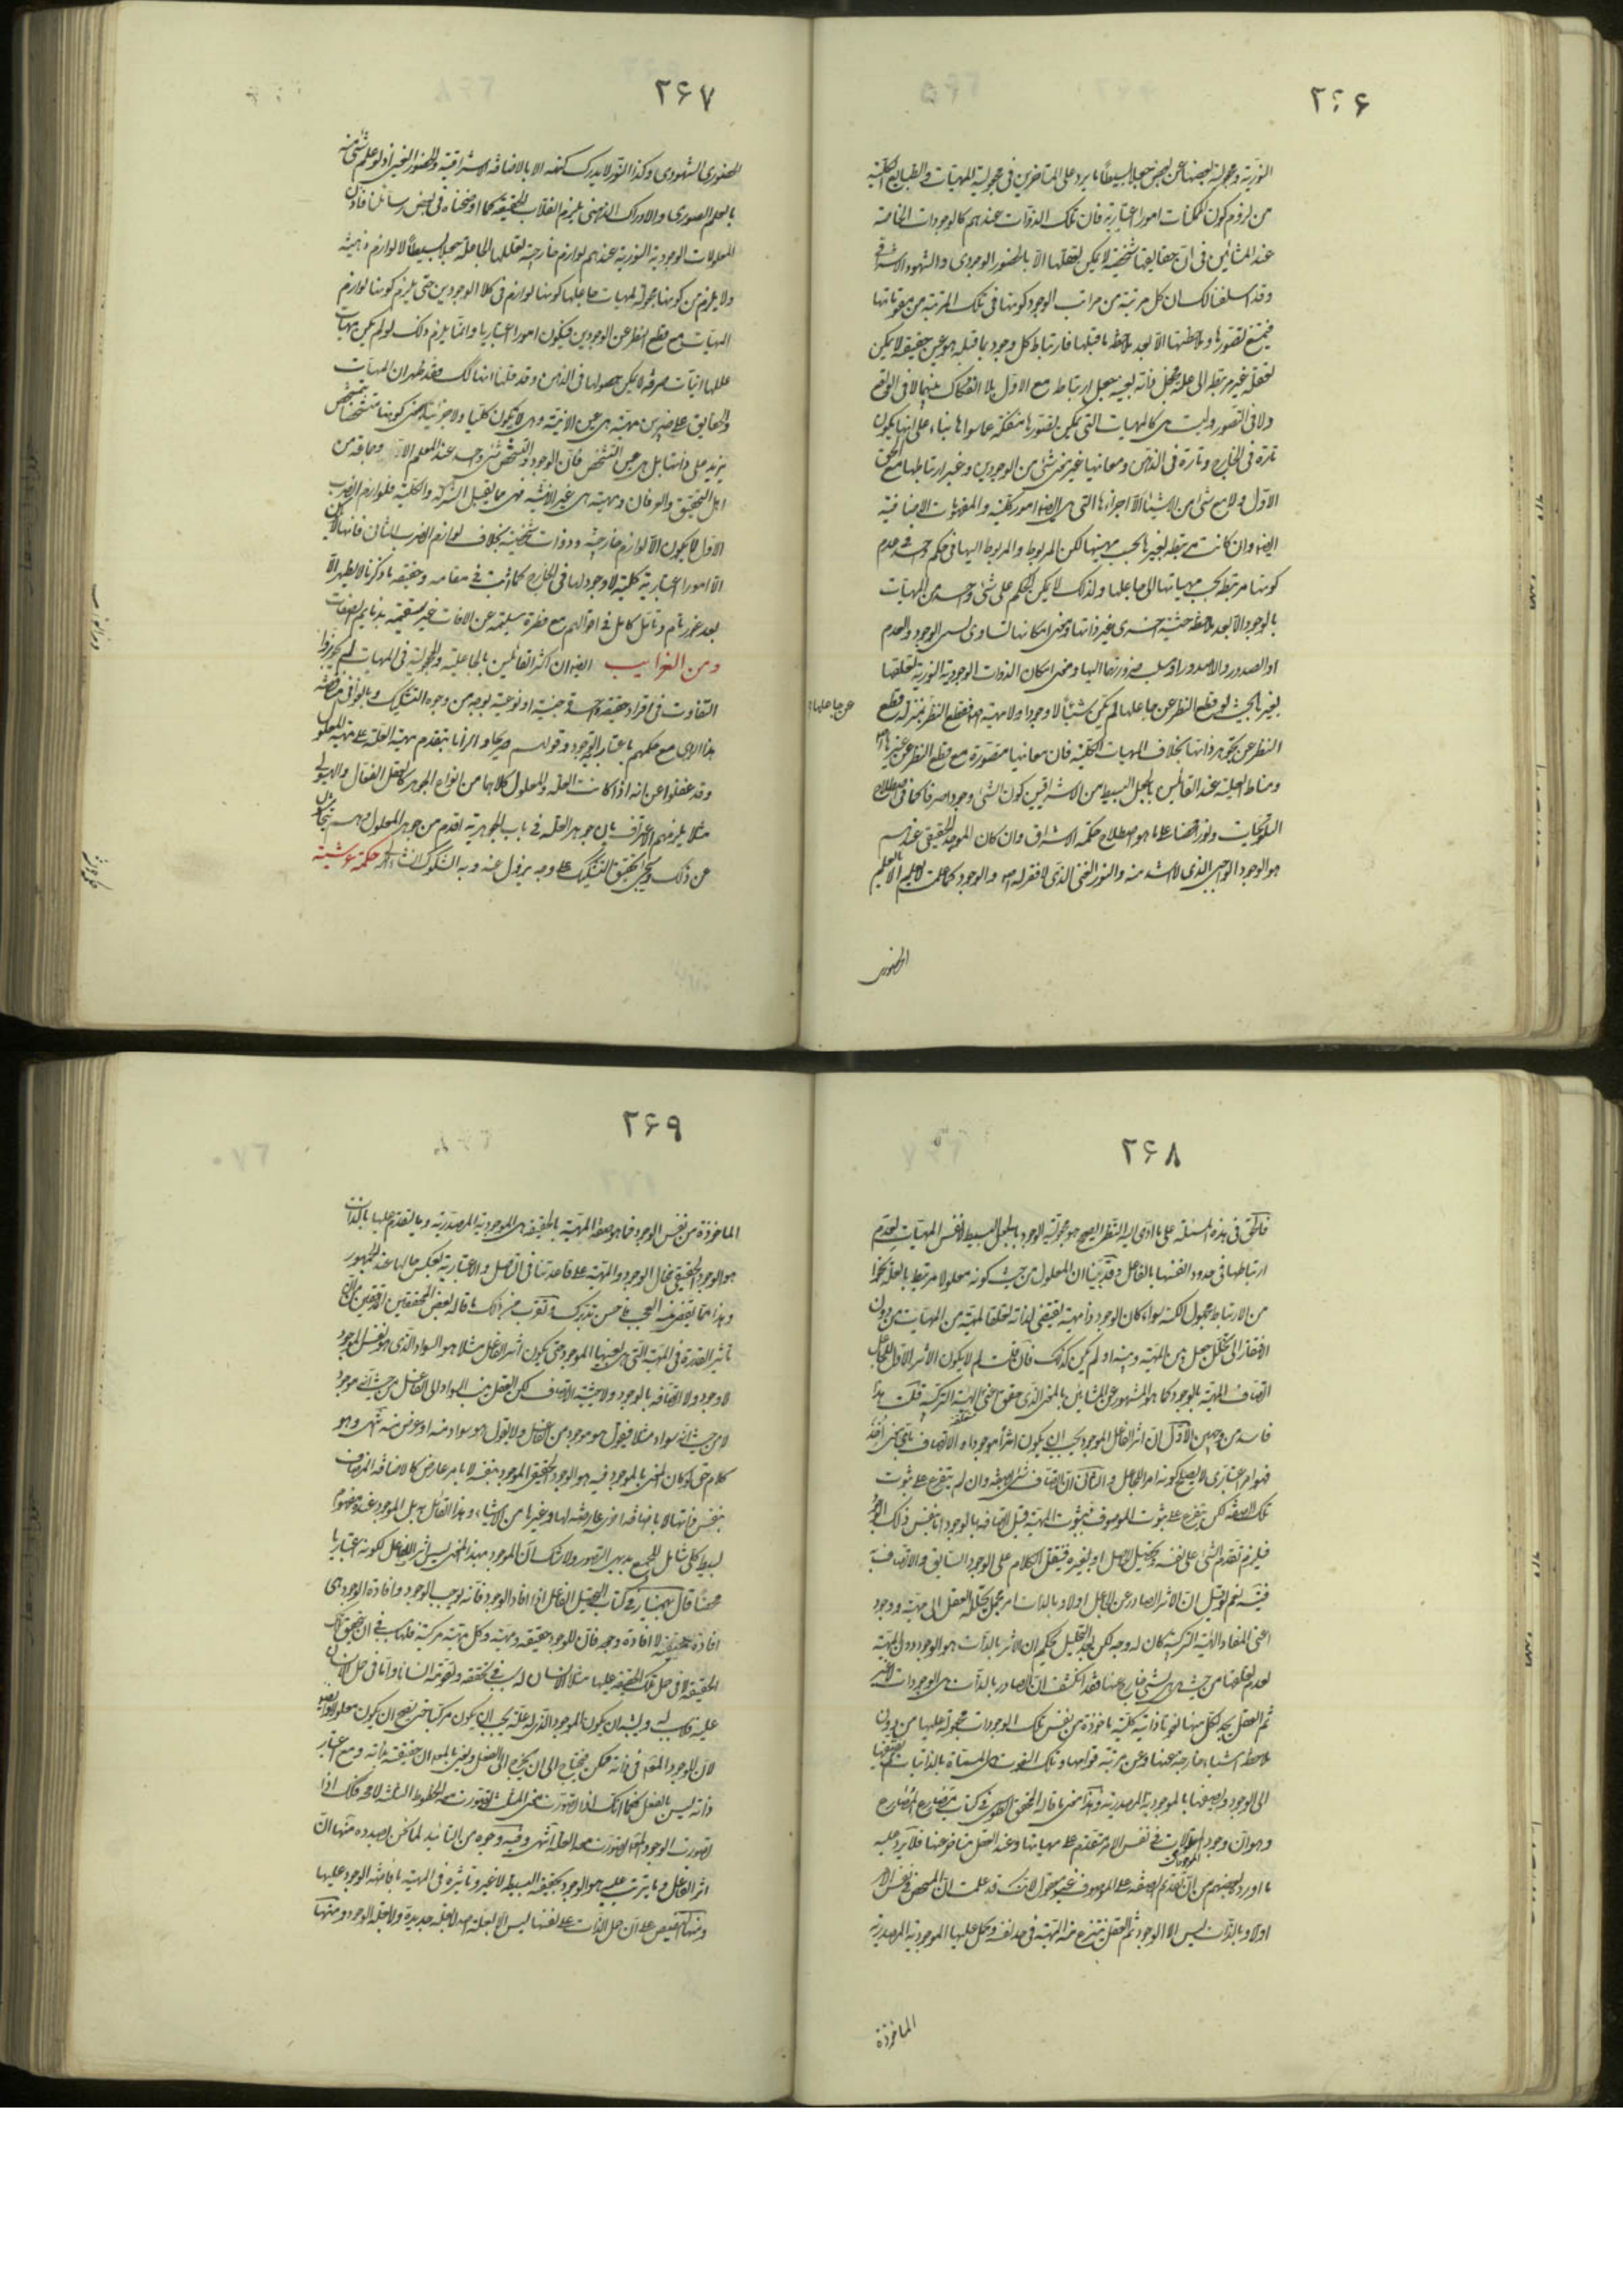 ۲۶۶
النوریة ومجعولیة بعضها عن بعض جعلا بسیطاً ما یرد علی المتاخرین فی مجعولیة المهیات والطبایع الکلیة
من لزوم کون الممکنات امورا اعتباریة فان تلک الذوات عندهم کالوجودات الخاصة
عند المشائین فی ان حقایقها شخصیة لا یمکن تعقلها الا بالحضور الوجودی والشهود الاشراقی
وقد اسلفنا لک ان کل مرتبة من مراتب الوجود کونها فی تلک المرتبة من مقوماتها
فیمتنع تصورها وملاحظتها الا بعد ملاحظة ما قبلها فارتباط کل وجود بما قبله هو عین حقیقته لا یمکن
تعقله غیر مرتبط الی علة
ولا فی التصور ولیست هی کالمهیات التی یمکن تصورها منفکة عما سواها بناء علی انها یکون
تارة فی الخارج وتارة فی الذهن ومعانیها غیر معنی شئ من الوجودین وغیر ارتباطها مع الحق
الاول ولا مع شئ من الاشیاء الا اجزاءها التی هی ایضا امور کلیة والمفهومات الاضافیة
ایضا وان کانت مرتبطة بغیرها بحسب مهیتها لکن المربوط والمربوط الیها فی حکم واحد فی عدم
کونها مرتبطة بحسب مهیاتها الی جاعلها ولذلک لا یمکن الحکم علی شئ واحد من المهیات
بالوجود الا بعد ملاحظة حیثیة اخری غیر ذاتها ومعنی امکانها تساوی نسبی الوجود والعدم
او الصدور واللاصدور او سلب ضرورتهما الیها ومعنی امکان الذوات الوجودیة النوریة تعلقها
بغیرها بحیث لو قطع النظر عن جاعلها لم یکن شیئاً لا وجودا ولا مهیة اصلا فقطع النظر
عن جاعلها
النظر عن تجوهر ذاتها بخلاف المهیات الکلیة فان معانیها متصورة مع قطع النظر عن غیرها
ومناط العلیة عند القائلین بالجعل البسیط من الاشراقیین کون الشئ وجودا صرفا کما فی اصطلاح
التلویحات ونورا محضا علی ما هو اصطلاح حکمة الاشراق وان کان الموجد الحقیقی عندهم
هو الوجود الواجبی الذی لا اشد منه والنور الغنی الذی لا فقر له اصلا والوجود کما علمت لا یعلم الا بالعلم
الحضوری
۲۶۷
الحضوری الشهودی وکذا النور لا یدرک کنهه الا بالاضافة الاشراقیة والحضور العینی اذ لو علم شئ منه
بالعلم الصوری والادراک الذهنی یلزم انقلاب الحقیقة کما اوضحناه فی بعض رسائلنا فاذن
المعلولات الوجودیة النوریة عندهم لوازم خارجیة لعللها الجاعلة جعلا بسیطاً لا لوازم ذهنیة
ولا یلزم من کونها مجعولة لمهیات جاعلها کونها لوازم فی کلا الوجودین حتی یلزم کونها لوازم
المهیات مع قطع النظر عن الوجودین فیکون امورا اعتباریا وانما یلزم ذلک لو لم یکن مهیات
عللها انیات صرفة لا یمکن حصولها فی الذهن وقد قلنا انها کذلک فقد ظهر ان المهیات
والحقایق علی ضربین مهیة هی عین الانیة وهی لا یکون کلیا ولا جزئیا بمعنی کونها متشخصا بتشخص
یزید علی ذاتها بل هی عین التشخص فان الوجود والتشخص شئ واحد عند المعلم الثانی وجماعة من
اهل التحقیق والعرفان ومهیة هی غیر الانیة فهی مما یقبل الشرکة والکلیة فلوازم الضرب
الاول لا یکون الا لوازم خارجیة وذوات شخصیة بخلاف لوازم الضرب الثانی فانها لا یکون
الا امورا اعتباریة کلیة لا وجود لها فی الخارج کما اثبت فی مقامه وحقیقة ما ذکرنا لا یظهر الا
بعد غور تام وتامل کامل فی اقوالهم مع فطرة سلیمة عن الافات غیر سقیمة
ومن الغرایب ایضا ان اکثر القائلین بالجاعلیة والمجعولیة فی المهیات لم یجوزوا
التفاوت فی افراد حقیقة واحدة جنسیة او نوعیة بوجه من وجوه التشکیک وبالغوا فی مناقضة
هذا الرای مع حکمهم باعتباریة الوجود وقولهم صریحا والزاما بتقدم مهیة العلة علی مهیة المعلول
وقد غفلوا عن انه اذا کانت العلة والمعلول کلاهما من انواع الجوهر کالعقل الفعال والهیولی
مثلا یلزمهم الاعتراف بان جوهر العلة فی باب الجوهریة اقدم من جوهر المعلول
عن ذلک وسیجئ تحقیق التشکیک علی وجه یزول عنه وبه الشکوک انشاء الله حکمة عرشیة
۲۶۸
فالحق فی هذه المسئلة علی ما ادی الیه النظر الصحیح هو مجعولیة الوجود بالجعل البسیط لا نفس المهیات لعدم
ارتباطها فی حدود انفسها بالفاعل وقد بینا ان المعلول من حیث کونه معلولا مرتبط بالعلة نحوا
من الارتباط مجهول الکنه سواء کان الوجود ذا مهیة یقتضی لذاته تعلقا لمهیة من المهیات من دون
الافتقار الی تخلل جعل بین المهیة وبینه او لم یکن کذلک فان قلت لم لا یکون الاثر الاول للجاعل
اتصاف المهیة بالوجود کما هو المشهور عن المشائین بالمعنی الذی حقق معنی الهلیة الترکیبیة قلت هذا
فاسد من وجهین الاول ان اثر الفاعل الموجود یجب ان یکون امرا موجودا والاتصاف بای معنی اخذ
فهو امر اعتباری لا یصلح کونه اثر الجاعل والثانی ان الاتصاف شئ لشئ وان لم یتفرع علی ثبوت
تلک الصفة لکن یتفرع علی ثبوت الموصوف فثبوت المهیة قبل اتصافه بالوجود اما بنفس ذلک الوجود
فیلزم تقدم الشئ علی نفسه وتحصیل الحاصل او بغیره فننقل الکلام علی الوجود السابق والاتصاف به
فیتسلسل نعم لو قیل ان الاثر الصادر عن الفاعل اولا وبالذات امر مجمل یحلله العقل الی مهیة ووجود
اعنی المفاد الهیئة الترکیبیة کان له وجه لکن بعد التحلیل یحکم ان الاثر بالذات هو الوجود دون المهیة
لعدم تعلقها من حیث هی هی بشئ خارج عنها فقد انکشف ان الصادر بالذات هی الوجودات لا غیر
ثم العقل یجد لکل منها نعوتا ذاتیة کلیة ماخوذة عن نفس تلک الوجودات محمولة علیها من دون
ملاحظة اشیاء خارجة عنها وعن مرتبة قوامها وتلک النعوت هی المسماة بالذاتیات ثم یضیفها
الی الوجود ویصفها بالموجودیة المصدریة وهذا معنی ما قاله المحقق الطوسی فی کتاب مصارع المصارع
وهو ان وجود المعلولات فی نفس الامر متقدم علی مهیاتها وعند العقل متاخر عنها فلا یرد علیه
ما اورده بعضهم من ان تقدم الصفة علی الموصوف غیر معقول لانک قد علمت ان المتحقق فی نفس الامر
اولا وبالذات لیس الا الوجود ثم العقل ینتزع منه المهیة فی حد نفسه ویحمل علیها الموجودیة المصدریة
الماخوذة
۲۶۹
الماخوذة من نفس الوجود فما هو صفة المهیة بالحقیقة هی الموجودیة المصدریة وما یتقدم علیها بالذات
هو الوجود الحقیقی فحال الوجود والمهیة علی قاعدتنا فی التاصل والاعتباریة بعکس حالها عند الجمهور
وهذا مما یقضی منه العجب فاحسن تدبرک وتقرب من ذلک ما قاله بعض المحققین
تاثیر القدرة فی المهیة التی هی بعینها الموجود حتی یکون اثر الفاعل مثلا هو السواد الذی هو نفس الموجود
لا وجوده ولا اتصافه بالوجود ولا حیثیة الاتصاف لکن العقل ینسب السواد الی الفاعل من حیث انه موجود
لا من حیث انه سواد مثلا فیقول هو موجود من الفاعل ولا یقول هو سواد منه او عرض منه انتهی وهو
کلام حق لو کان المعنی بالموجود فیه هو الوجود الحقیقی الموجود بنفسه لا بامر عارض کالاضافة
بنفس ذاتها لا باضافة اخری عارضة لها وغیرها من الاشیاء، وهذا القائل
بسیط کلی شامل للجمیع بدیهی التصور ولا شک ان الموجود بهذا المعنی لیس اثر الفاعل لکونه اعتباریا
محضا قال بهمنیار فی کتاب التحصیل الفاعل اذا افاد الوجود فانه یوجب الوجود وافادة الوجود هی
افادة حقیقته لا افادة وجوده فان للوجود حقیقة ومهیة وکل مهیة مرکبة فلها سبب فی ان یتحقق تلک
الحقیقة لا فی حمل تلک الحقیقة علیها مثلا الانسان له سبب فی تحققه وتقومه انسانا واما فی حمل الانسان
علیه فلا سبب له ویشبه ان یکون للموجود الذی له علة یجب ان یکون مرکبا حتی یصح ان یکون معلولا
لان الوجود المعلول فی ذاته ممکن فیحتاج الی ان یخرج الی الفعل ونعنی بالمعلول ان حقیقته بذاته ومع اعتبار
ذاته لیس بالفعل فکما انک اذا تصورت معنی المثلث تصورت معه الخطوط الثلثة لا محة فکذلک اذا
تصورت الوجود المعلول تصورت معه العلة انتهی وفیه وجوه من التائید لما نحن بصدده منها ان
اثر الفاعل وما یترتب علیه هو الوجود بحقیقته البسیطة لا غیر وتاثیره فی المهیة بافاضة الوجود علیها
ومنها التنصیص علی ان حمل الذات علی نفسها لیس الا بعلة اصلا لا بعلة جدیدة ولا بعلة الوجود ومنها